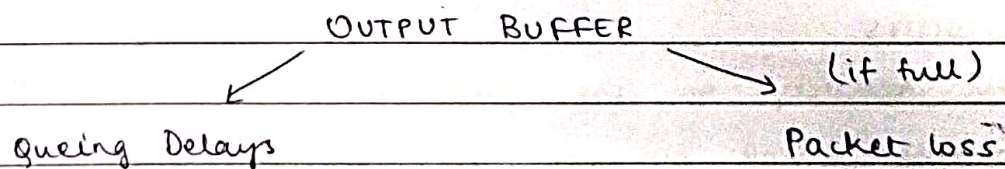 OUTPUT BUFFER
(if full)
Queing Delays
Packet loss